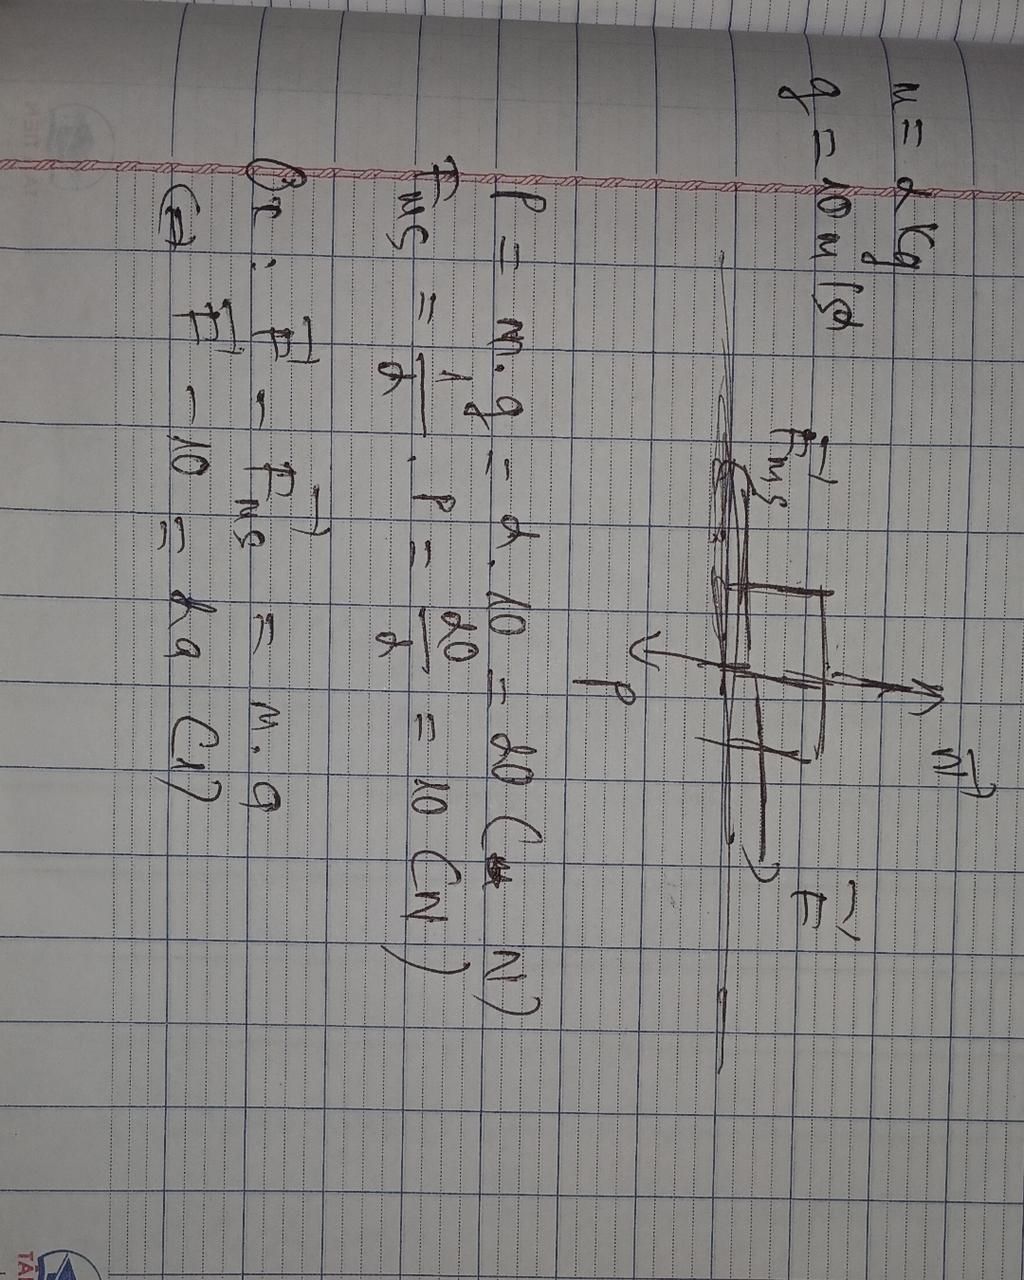 m = 2 kg
g = 10 m/s²
N
Fms
F
P
P = m.g = 2.10 = 20 (N)
Fms = 1/2 . P = 20/2 = 10 (N)
Ox: F - Fms = m.a
F - 10 = 2a (1)
TIẾN